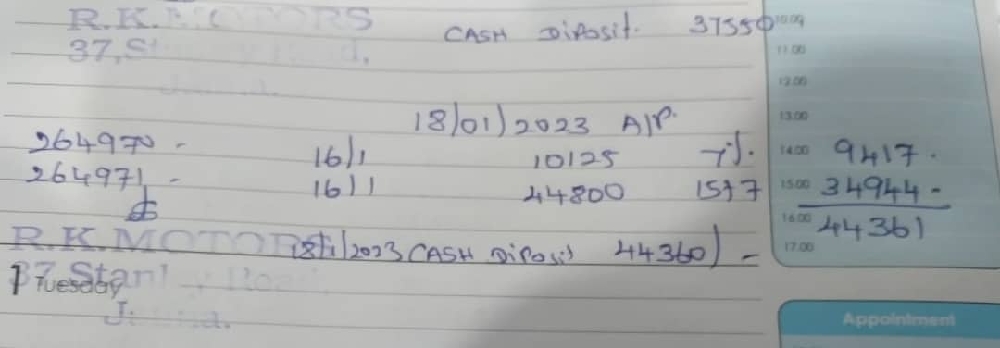 R.K. MOTORS
CASH DiPosit. 37550 10.00
37, St Road, 11.00
12.00
18/01/2023 A/P. 13.00
264970 - 16/1 10125 7%. 14.00 9417.
264971 - 16/1 44800 15+7 15.00 34944 -
16.00 44361
R.K. MOTORS 18/1/2023 CASH DiPosit 44360/- 17.00
37, Stanl y Road,
Tuesday
J na.
Appointment